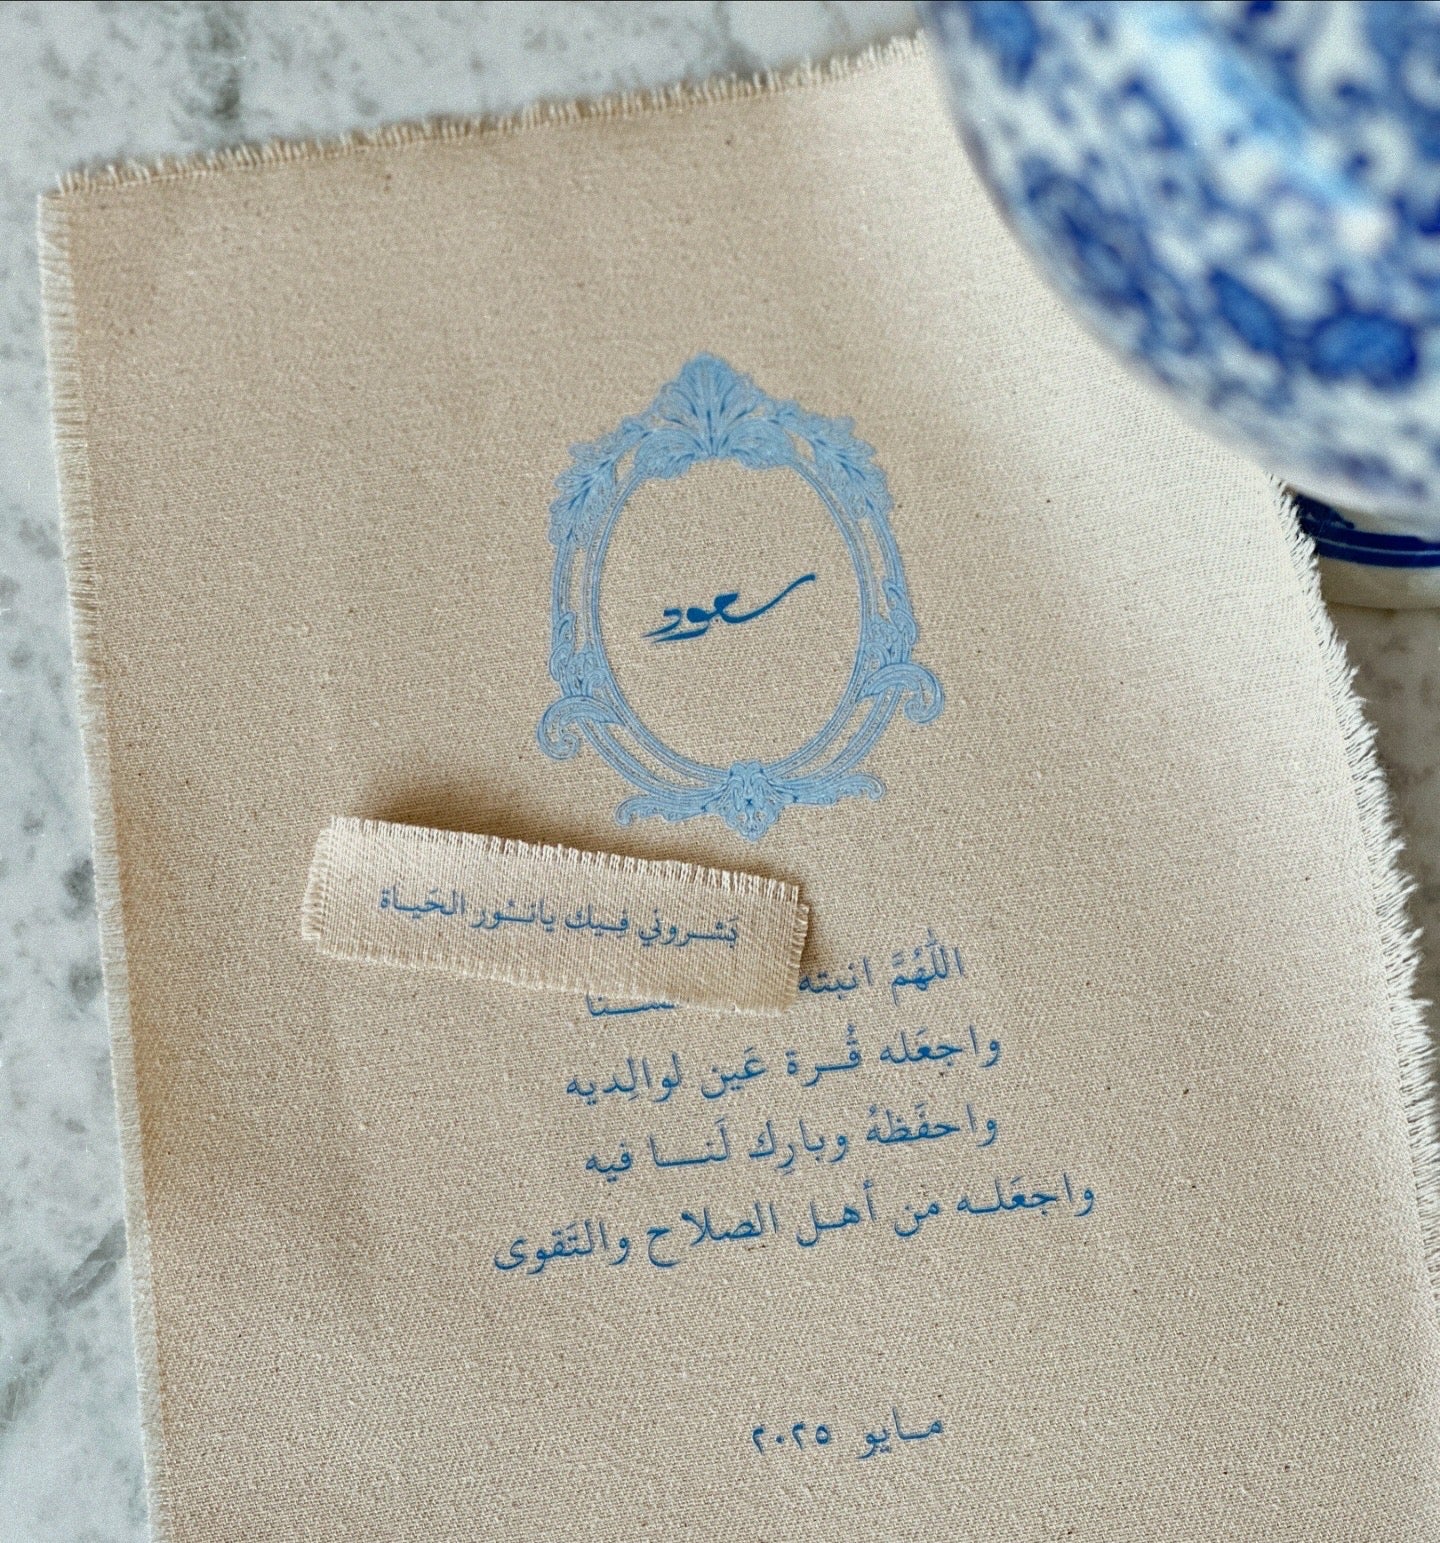 سعود
بَشروني فيك يانور الحَياة
اللَّهُمَّ انبته
واجعَله قُرة عَين لوالِديه
واحفَظهُ وبارِك لَنا فيه
واجعَله من أهل الصلاح والتَقوى
مايو ٢٠٢٥